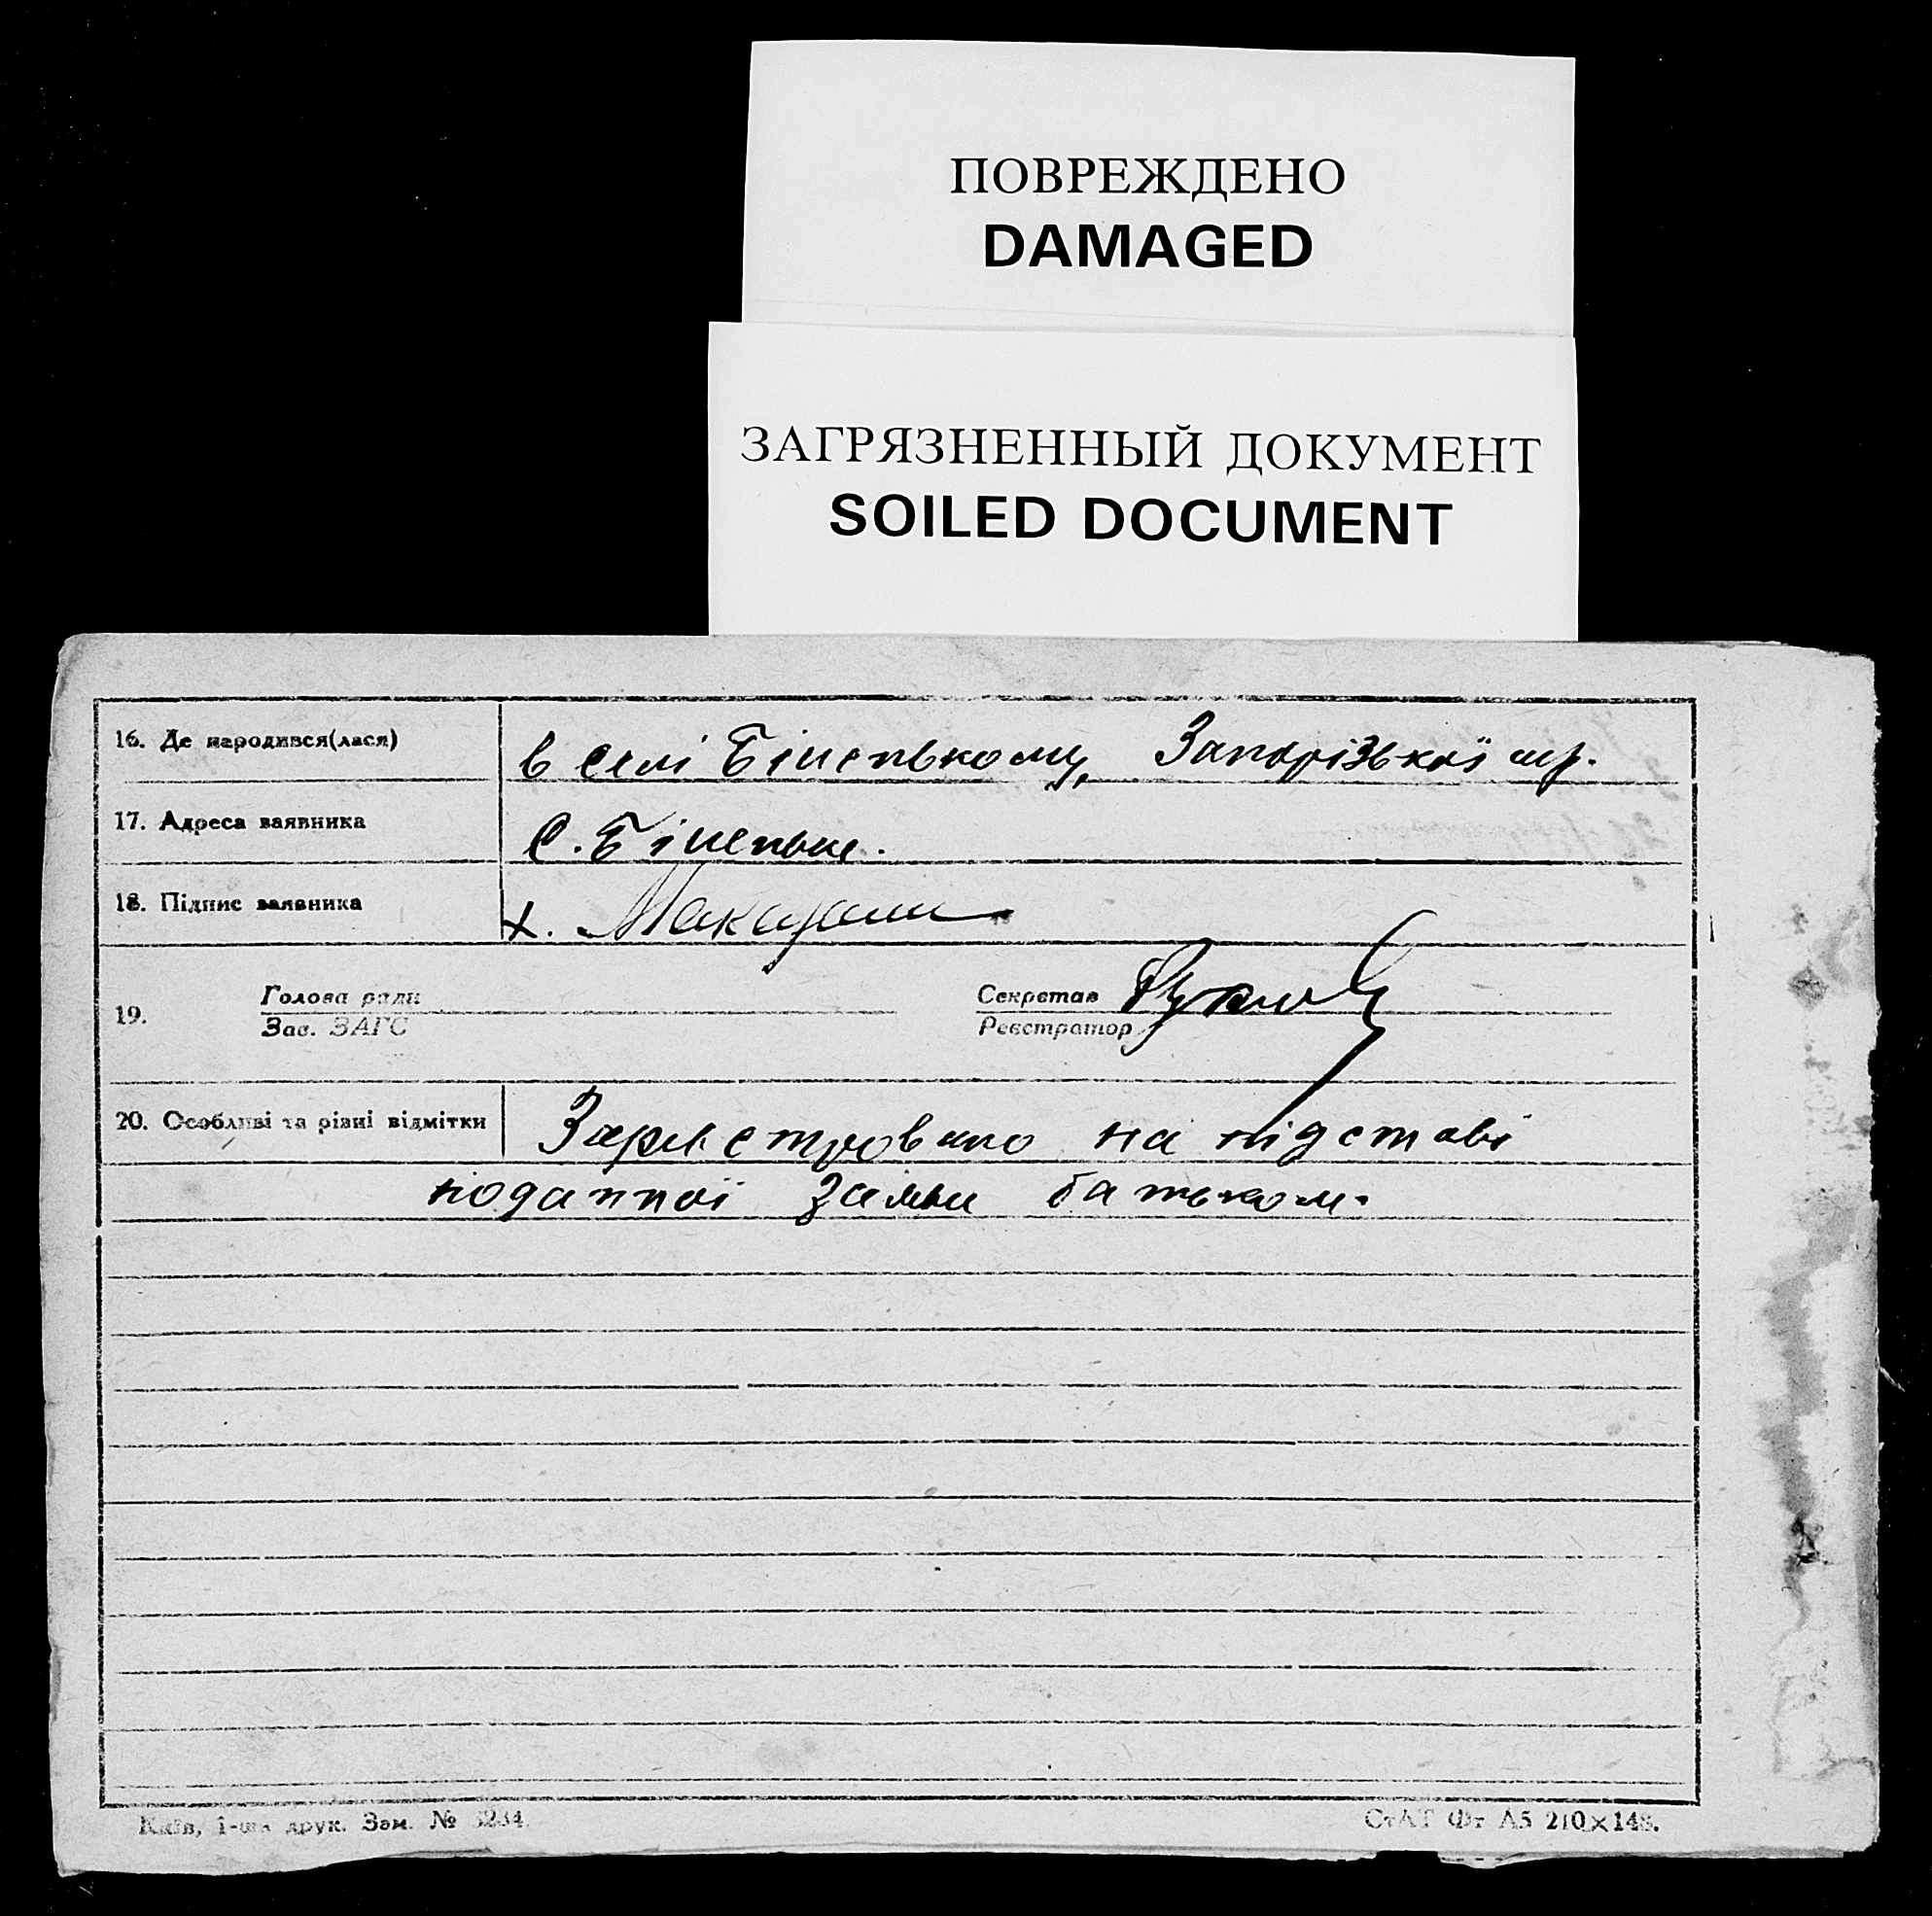 ПОВРЕЖДЕНО
DAMAGED
ЗАГРЯЗНЕННЫЙ ДОКУМЕНТ
SOILED DOCUMENT
16. Де народився(лася)
в селі Біленькому, Запорізької
17. Адреса заявника
С. Біленьке.
18. Підпис заявника
х.
19.
Голова ради
Зав. ЗАГС
Секретар
Реєстратор
20. Особливі та різні відмітки
Зареєстровано на підставі
поданної заяви батьком.
Київ, 1-ша друк. Зам. №
СтАТ Фт А5 210×148.